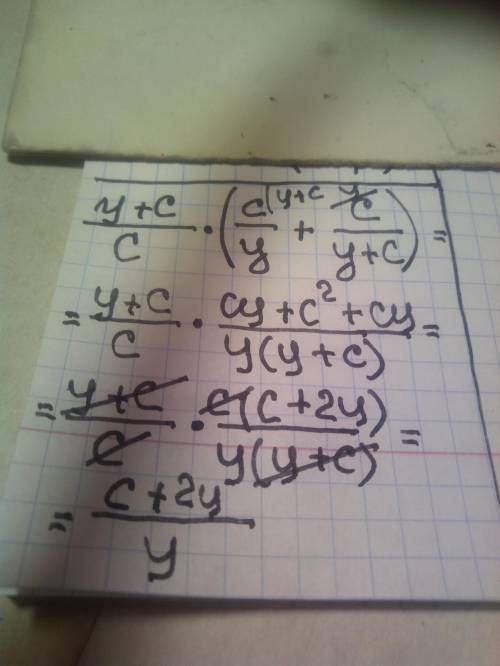 (y+c)/c · (c/y |y+c + c/(y+c) |y) =
= (y+c)/c · (cy+c²+cy)/(y(y+c)) =
= (y+c)/c · (c(c+2y))/(y(y+c)) =
= (c+2y)/y